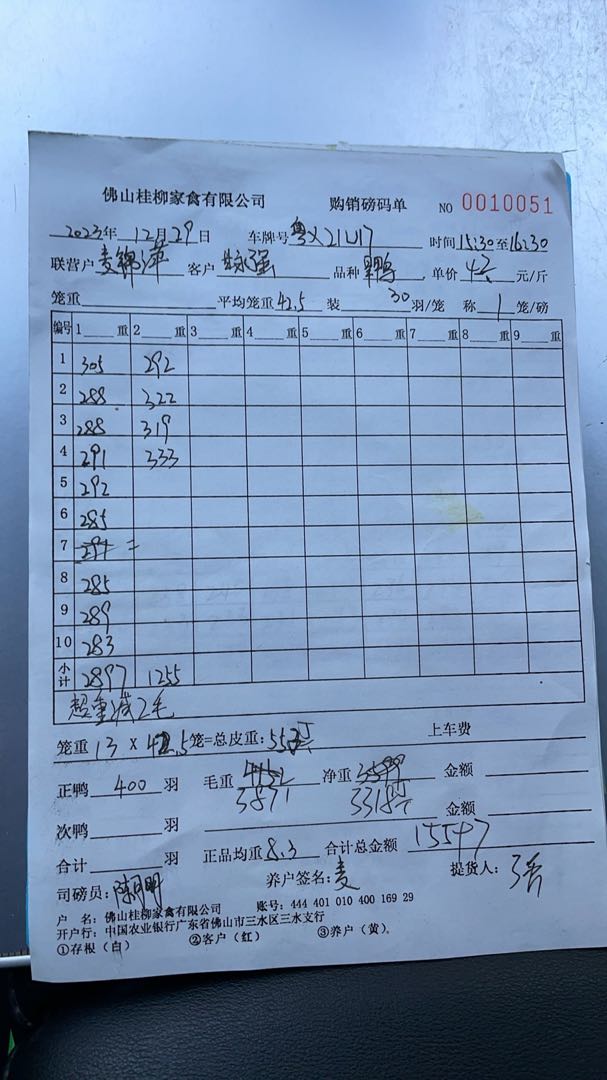 佛山桂柳家禽有限公司 购销磅码单 NO 0010051
2023年 12月29日 车牌号 粤X21U17 时间15:30至16:30
联营户 麦锦萍 客户 强 品种 单价 元/斤
笼重 平均笼重42.5 装 30 羽/笼 称 1 笼/磅
编号 1 重 2 重 3 重 4 重 5 重 6 重 7 重 8 重 9 重
1 305 292
2 288 322
3 288 319
4 291 333
5 292
6 285
7 291 =
8 285
9 289
10 283
小计 2897 1255
超重减2毛
笼重 13 X 42.5 笼=总皮重: 552 上车费
正鸭 400 羽 毛重 4152 净重 3599 金额
3871 3318 金额
次鸭 羽
合计 羽 正品均重 8.3 合计总金额 15547
司磅员: 陈明 养户签名: 麦 提货人:
户 名: 佛山桂柳家禽有限公司 账号: 444 401 010 400 169 29
开户行: 中国农业银行广东省佛山市三水区三水支行
①存根(白) ②客户(红) ③养户(黄)。